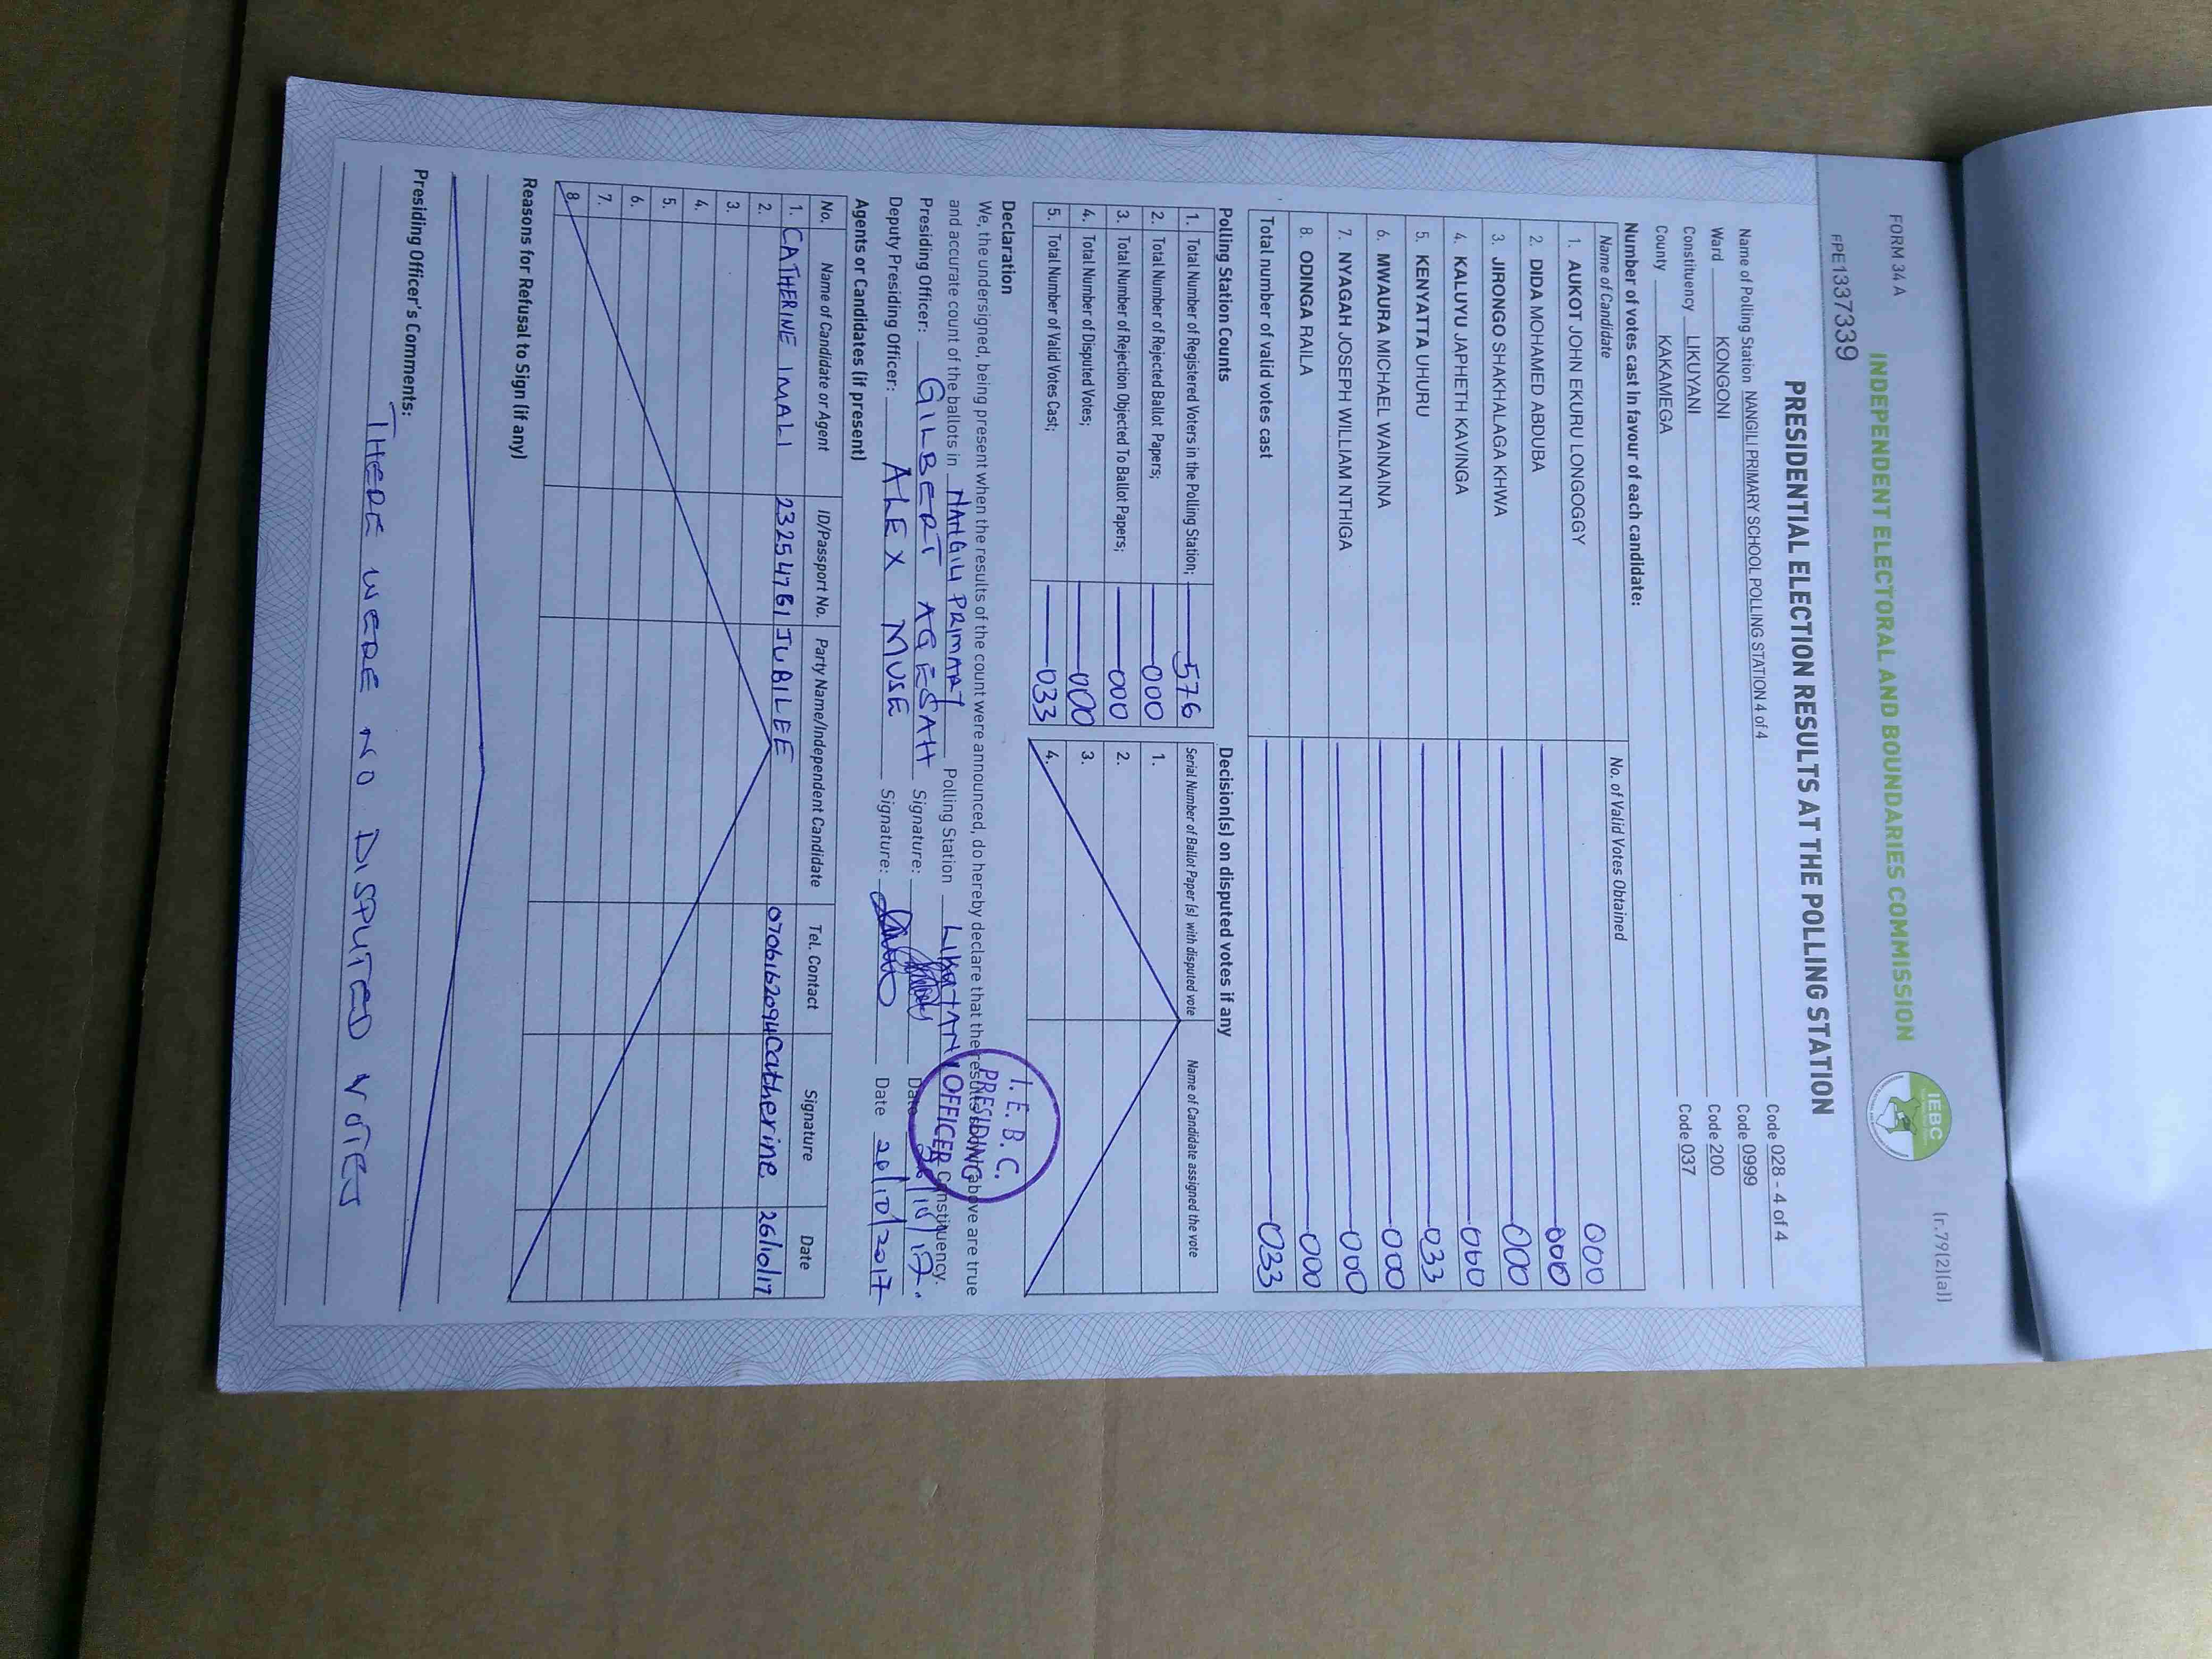 FORM 34 A
(r.79(2)(a))
INDEPENDENT ELECTORAL AND BOUNDARIES COMMISSION
IEBC
PRE1337339
PRESIDENTIAL ELECTION RESULTS AT THE POLLING STATION
Name of Polling Station NANGILI PRIMARY SCHOOL POLLING STATION 4 of 4 Code 028 - 4 of 4
Ward KONGONI Code 0999
Constituency LIKUYANI Code 200
County KAKAMEGA Code 037
Number of votes cast in favour of each candidate:
Name of Candidate No. of Valid Votes Obtained
1. AUKOT JOHN EKURU LONGOGGY 000
2. DIDA MOHAMED ABDUBA 000
3. JIRONGO SHAKHALAGA KHWA 000
4. KALUYU JAPHETH KAVINGA 000
5. KENYATTA UHURU 033
6. MWAURA MICHAEL WAINAINA 000
7. NYAGAH JOSEPH WILLIAM NTHIGA 000
8. ODINGA RAILA 000
Total number of valid votes cast 033
Polling Station Counts Decision(s) on disputed votes if any
1. Total Number of Registered Voters in the Polling Station; 576 Serial Number of Ballot Paper (s) with disputed vote Name of Candidate assigned the vote
2. Total Number of Rejected Ballot Papers; 000 1.
3. Total Number of Rejection Objected To Ballot Papers; 000 2.
4. Total Number of Disputed Votes; 000 3.
5. Total Number of Valid Votes Cast; 033 4.
Declaration
We, the undersigned, being present when the results of the count were announced, do hereby declare that the results shown above are true
and accurate count of the ballots in NANGILI PRIMARY Polling Station LIKUYANI Constituency.
Presiding Officer: GILBERT AGESAH Signature: Date 26/10/17.
Deputy Presiding Officer: ALEX MUSE Signature: Date 26/10/2017
I.E.B.C.
PRESIDING
OFFICER
Agents or Candidates (if present)
No. Name of Candidate or Agent ID/Passport No. Party Name/Independent Candidate Tel. Contact Signature Date
1. CATHERINE IMALI 23254761 JUBILEE 0706162094 Catherine 26/10/17
2.
3.
4.
5.
6.
7.
8.
Reasons for Refusal to Sign (if any)
Presiding Officer's Comments:
THERE WERE NO DISPUTED VOTES